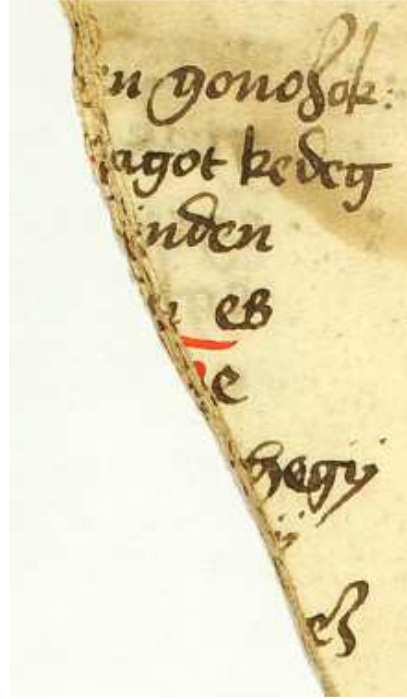 n gonoʒok:
agot kedeg
inden
es
e
hegij
eʒ